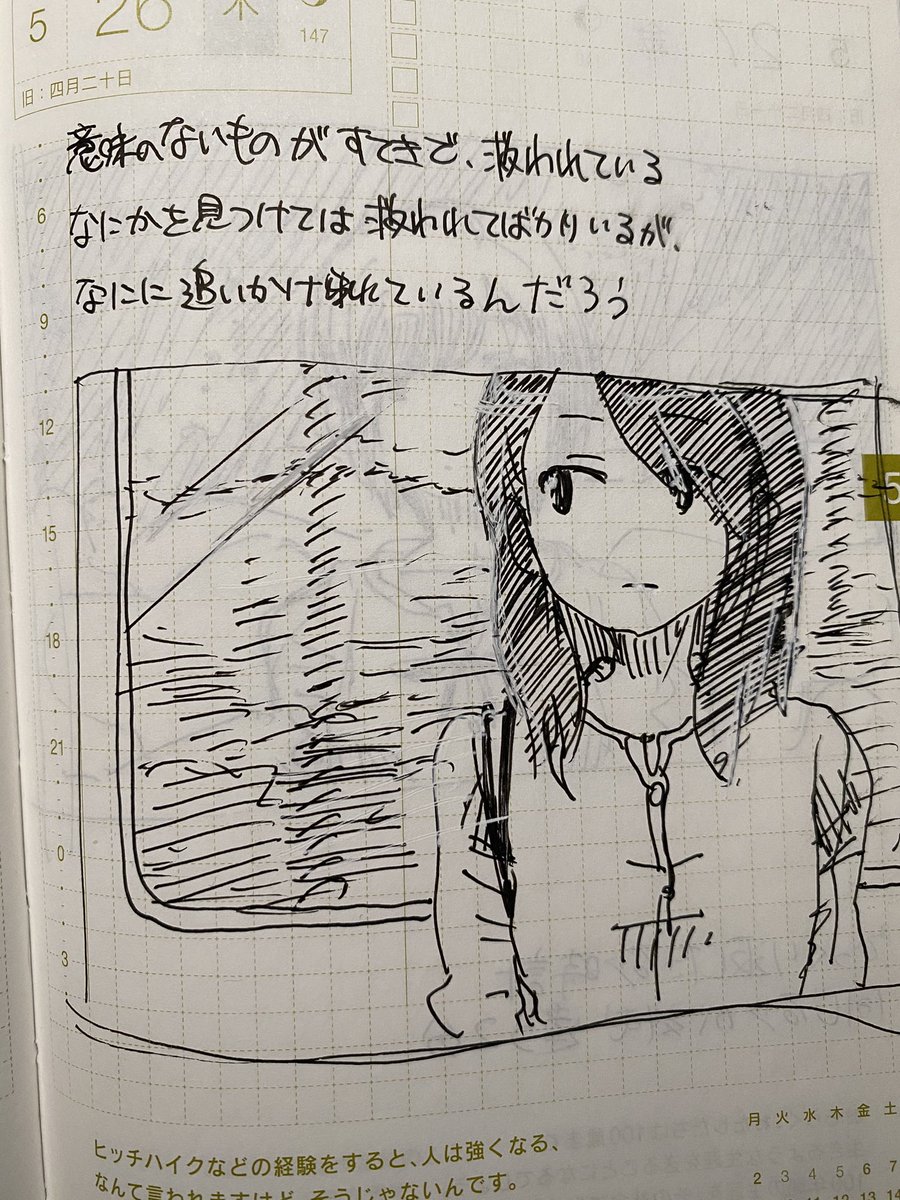 5 26 木
147
旧:四月二十日
意味のないものがすてきで、救われている
なにかを見つけては救われてばかりいるが、
なにに追いかけられているんだろう
6
9
12
15
18
21
0
3
5
月 火 水 木 金 土
2 3 4 5 6 7
ヒッチハイクなどの経験をすると、人は強くなる、
なんて言われますけど、そうじゃないんです。